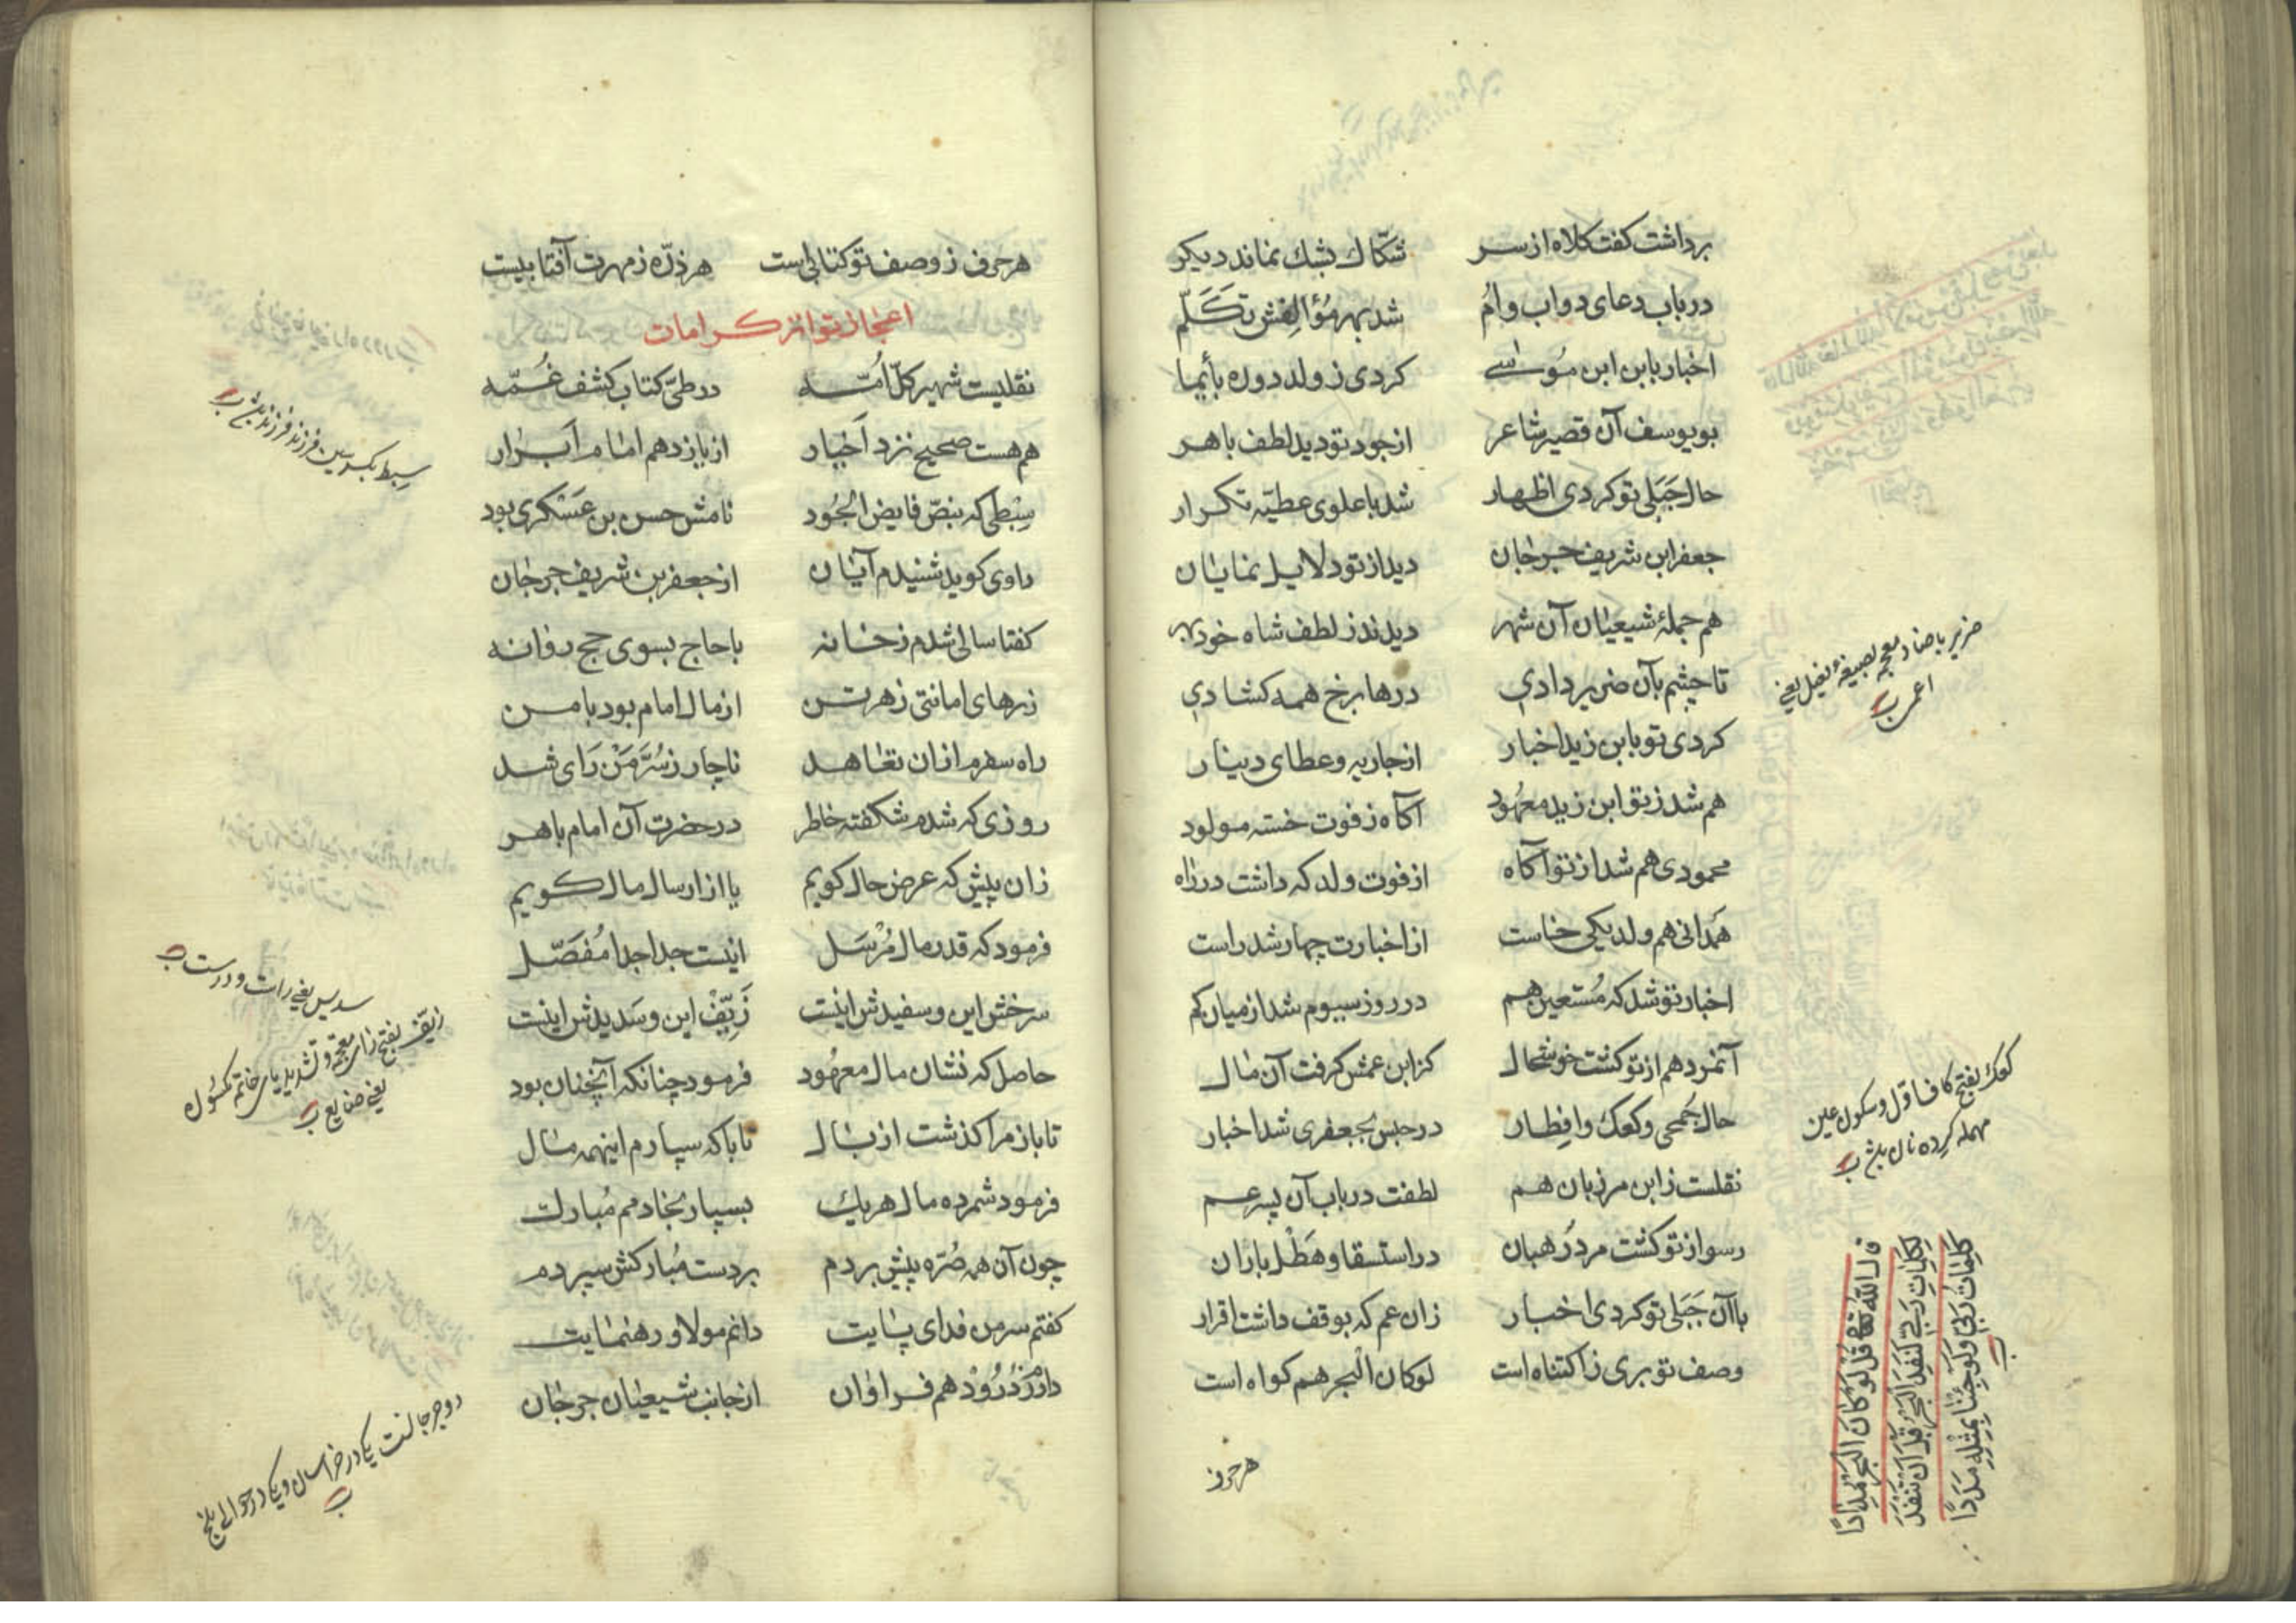 برداشت کفت کلاه از سر شکّاك بشك نماند دیکر
در باب دعای دواب و اُم شد بهر مُؤالِفش تَکَلّم
اخبار بابن ابن مُوسی کردی ز ولد دوره بأیما
بویوسف آن قصیر شاعر از جود تو دید لطف باهر
حال جَبَلی تو کردی اظهار شد با علوی عطیّه تکرار
جعفر ابن شریف جرجان دید از تو دلایل نمایان
هم جملهٔ شیعیان آن شهر دیدند ز لطف شاه خود بهر
تا چشم بآن ضریر دادی درها برخ همه کشادی
کردی تو بابن زید اخبار از جاریه و عطای دینار
هم شد ز تو ابن زید معهُود آکاه ز فوت خسته مولود
محمودی هم شد از تو آکاه از فوت ولد که داشت در راه
هَمَدانی هم ولد یکی خاست از اخبارت چهار شد راست
اخبار تو شد که مُستعین هم در روز سیوم شد از میان کم
آنمرد هم از تو کشت خوشحال کز ابن عمش کرفت آن مال
حال جُمحی و کعك و افِطار در حبس بجعفری شد اخبار
نقلست ز ابن مرزبان هم لطفت در باب آن پسر عم
رسوا از تو کشت مرد رُهبان در استسقا و هَطْل باران
با آن جَبَلی تو کردی اخبار زان عم که بوقف داشت اقرار
وصف تو بری ز اکتناه است لوکان الْبحر هم کواه است
هر حرف
ضریر با ضاد معجمه بصیغهٔ فعیل یعنی
اعمی
کعك بفتح کاف اوّل و سکون عین
مهمله کرده نان
قال الله تعالی قُلْ لَوْ کَانَ الْبَحْرُ مِدَادًا
لِکَلِمَاتِ رَبِّی لَنَفِدَ الْبَحْرُ قَبْلَ اَنْ تَنْفَدَ
کَلِمَاتُ رَبِّی وَلَوْ جِئْنَا بِمِثْلِهِ مَدَدًا
هر حرف ز وصف تو کتابی است هر ذرّه ز مهرت آفتابیست
اعجاز بتواتر کرامات
نقلیست شهیر کلّ اُمّه در طیّ کتاب کشف غُمّه
هم هست صحیح نزد اَخیار از یازدهم امام اَبرار
سِبْطی که بنصّ فایض الْجُود نامش حسن بن عَسْکری بود
راوی کوید شنیدم آیان از جعفر بن شریف جرجان
کفتا سالی شدم ز خانه با حاج بسوی حج روانه
زرهای امانتی ز هر تن از مال امام بود با من
راه سفرم از ان تعاهد ناچار ز سُرَّمَنْ رَای شد
روزی که شدم شکفته خاطر در حضرت آن امام باهر
زان پیش که عرض حال کویم یا از ارسال مال کویم
فرمود که قدر مال مُرْسَل اینست جدا جدا مُفَصّل
سرخش این و سفیدش اینست زَیِّفْ این و سَدیدش اینست
حاصل که نشان مال معهُود فرمود چنانکه آنچنان بود
تا باز مرا کذشت از بال تا با که سپارم اینهمه مال
فرمود شمرده مال هر یك بسپار بخادمم مُبارك
چون آن همه صُرّه پیش بردم بر دست مُبارکش سپردم
کفتم سر من فدای پایت دانم مولا و رهنمایت
دارند دُرُوْد هم فراوان از جانب شیعیان جرجان
سِبط بکسر سین فرزند فرزند
سدیس یعنی راست و درست
زیّف بفتح زای معجمه و تشدید یای
دو جرجانست یکی در خراسان و یکی در حوالی بلخ